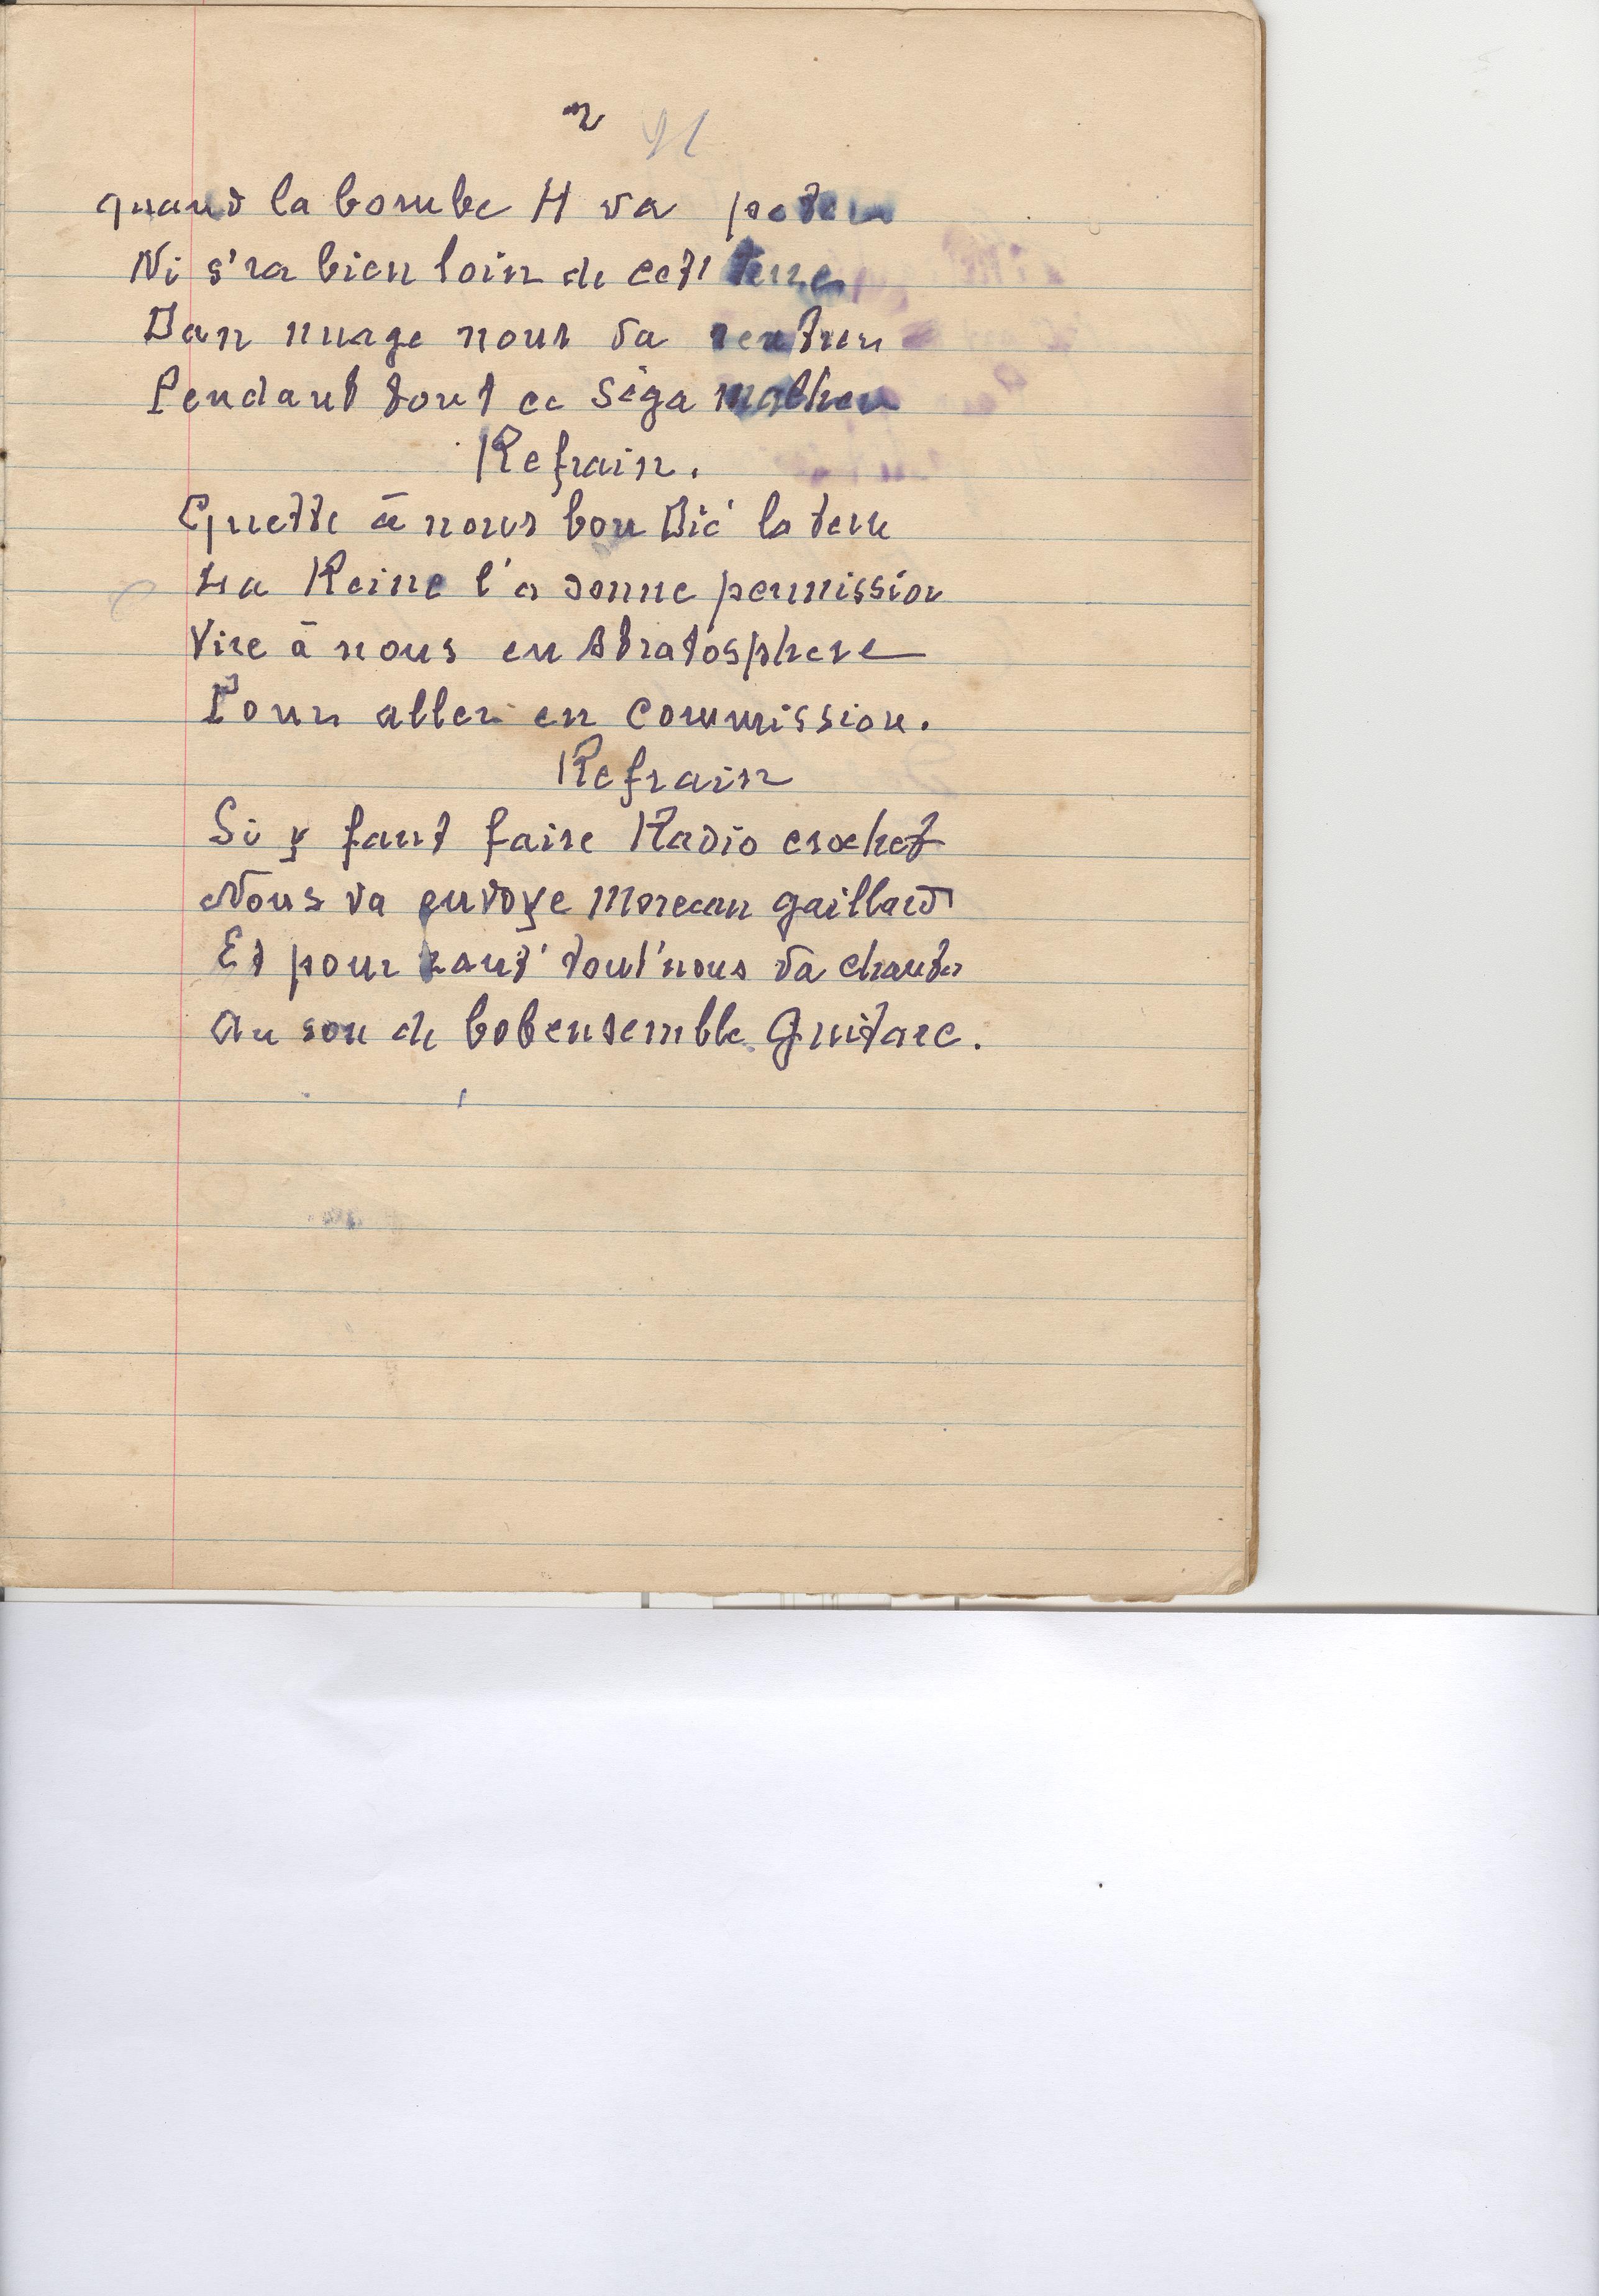 2 41
quand la bombe H va peter
Ni s'ra bien loin de cett' terre
Dan nuage nous va rentrer
Pendant tout ce séga malheu
Refrain.
Guette à nous bon Dié la terre
La Reine l'a donne permission
Vire à nous en stratosphere
Pour aller en commission.
Refrain
Si y faut faire Radio crochet
Nous va envoye morceau gaillard
Et pour zaut' tout' nous va chanter
Au son de bobensemble guitare.